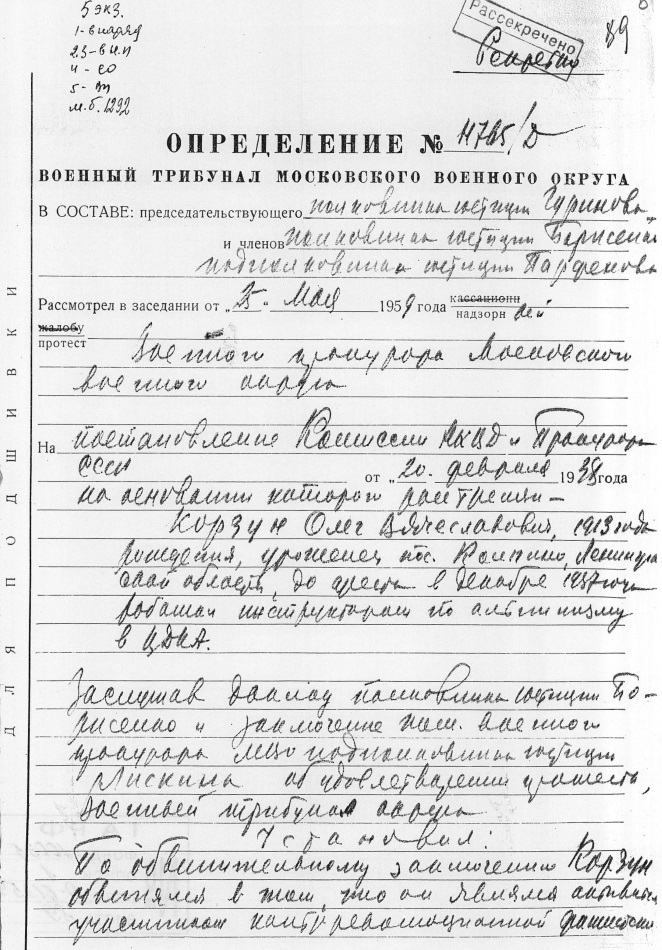 5 экз.
1-в наряд
2.3-в н.п
4-со
5-вп
м.б. 1292
Рассекречено
Секретно
89
ОПРЕДЕЛЕНИЕ № Н785/О
ВОЕННЫЙ ТРИБУНАЛ МОСКОВСКОГО ВОЕННОГО ОКРУГА
В СОСТАВЕ: председательствующего полковника юстиции Гуринова
и членов полковника юстиции Борисенко
подполковника юстиции Парфенова
Рассмотрел в заседании от „25" Мая 1959 года кассационн
надзорн ой
жалобу
протест
Военного прокурора Московского
военного округа
На постановление Комиссии НКВД и Прокурора
СССР от „20. февраля 1938 года
на основании которого расстрелян –
Корзун Олег Вячеславович, 1913 года
рождения, уроженец пос. Колпино, Ленинград
ской области, до ареста в декабре 1937 года
работал инструктором по альпинизму
в ЦДКА.
Заслушав доклад полковника юстиции Бо-
рисенко и заключение пом. военного
прокурора МВО подполковника юстиции
Лискина об удовлетворении протеста,
военный трибунал округа
Установил:
По обвинительному заключению Корзун
обвинялся в том, что он являлся активным
участником контрреволюционной фашистской
ДЛЯ ПОДШИВКИ